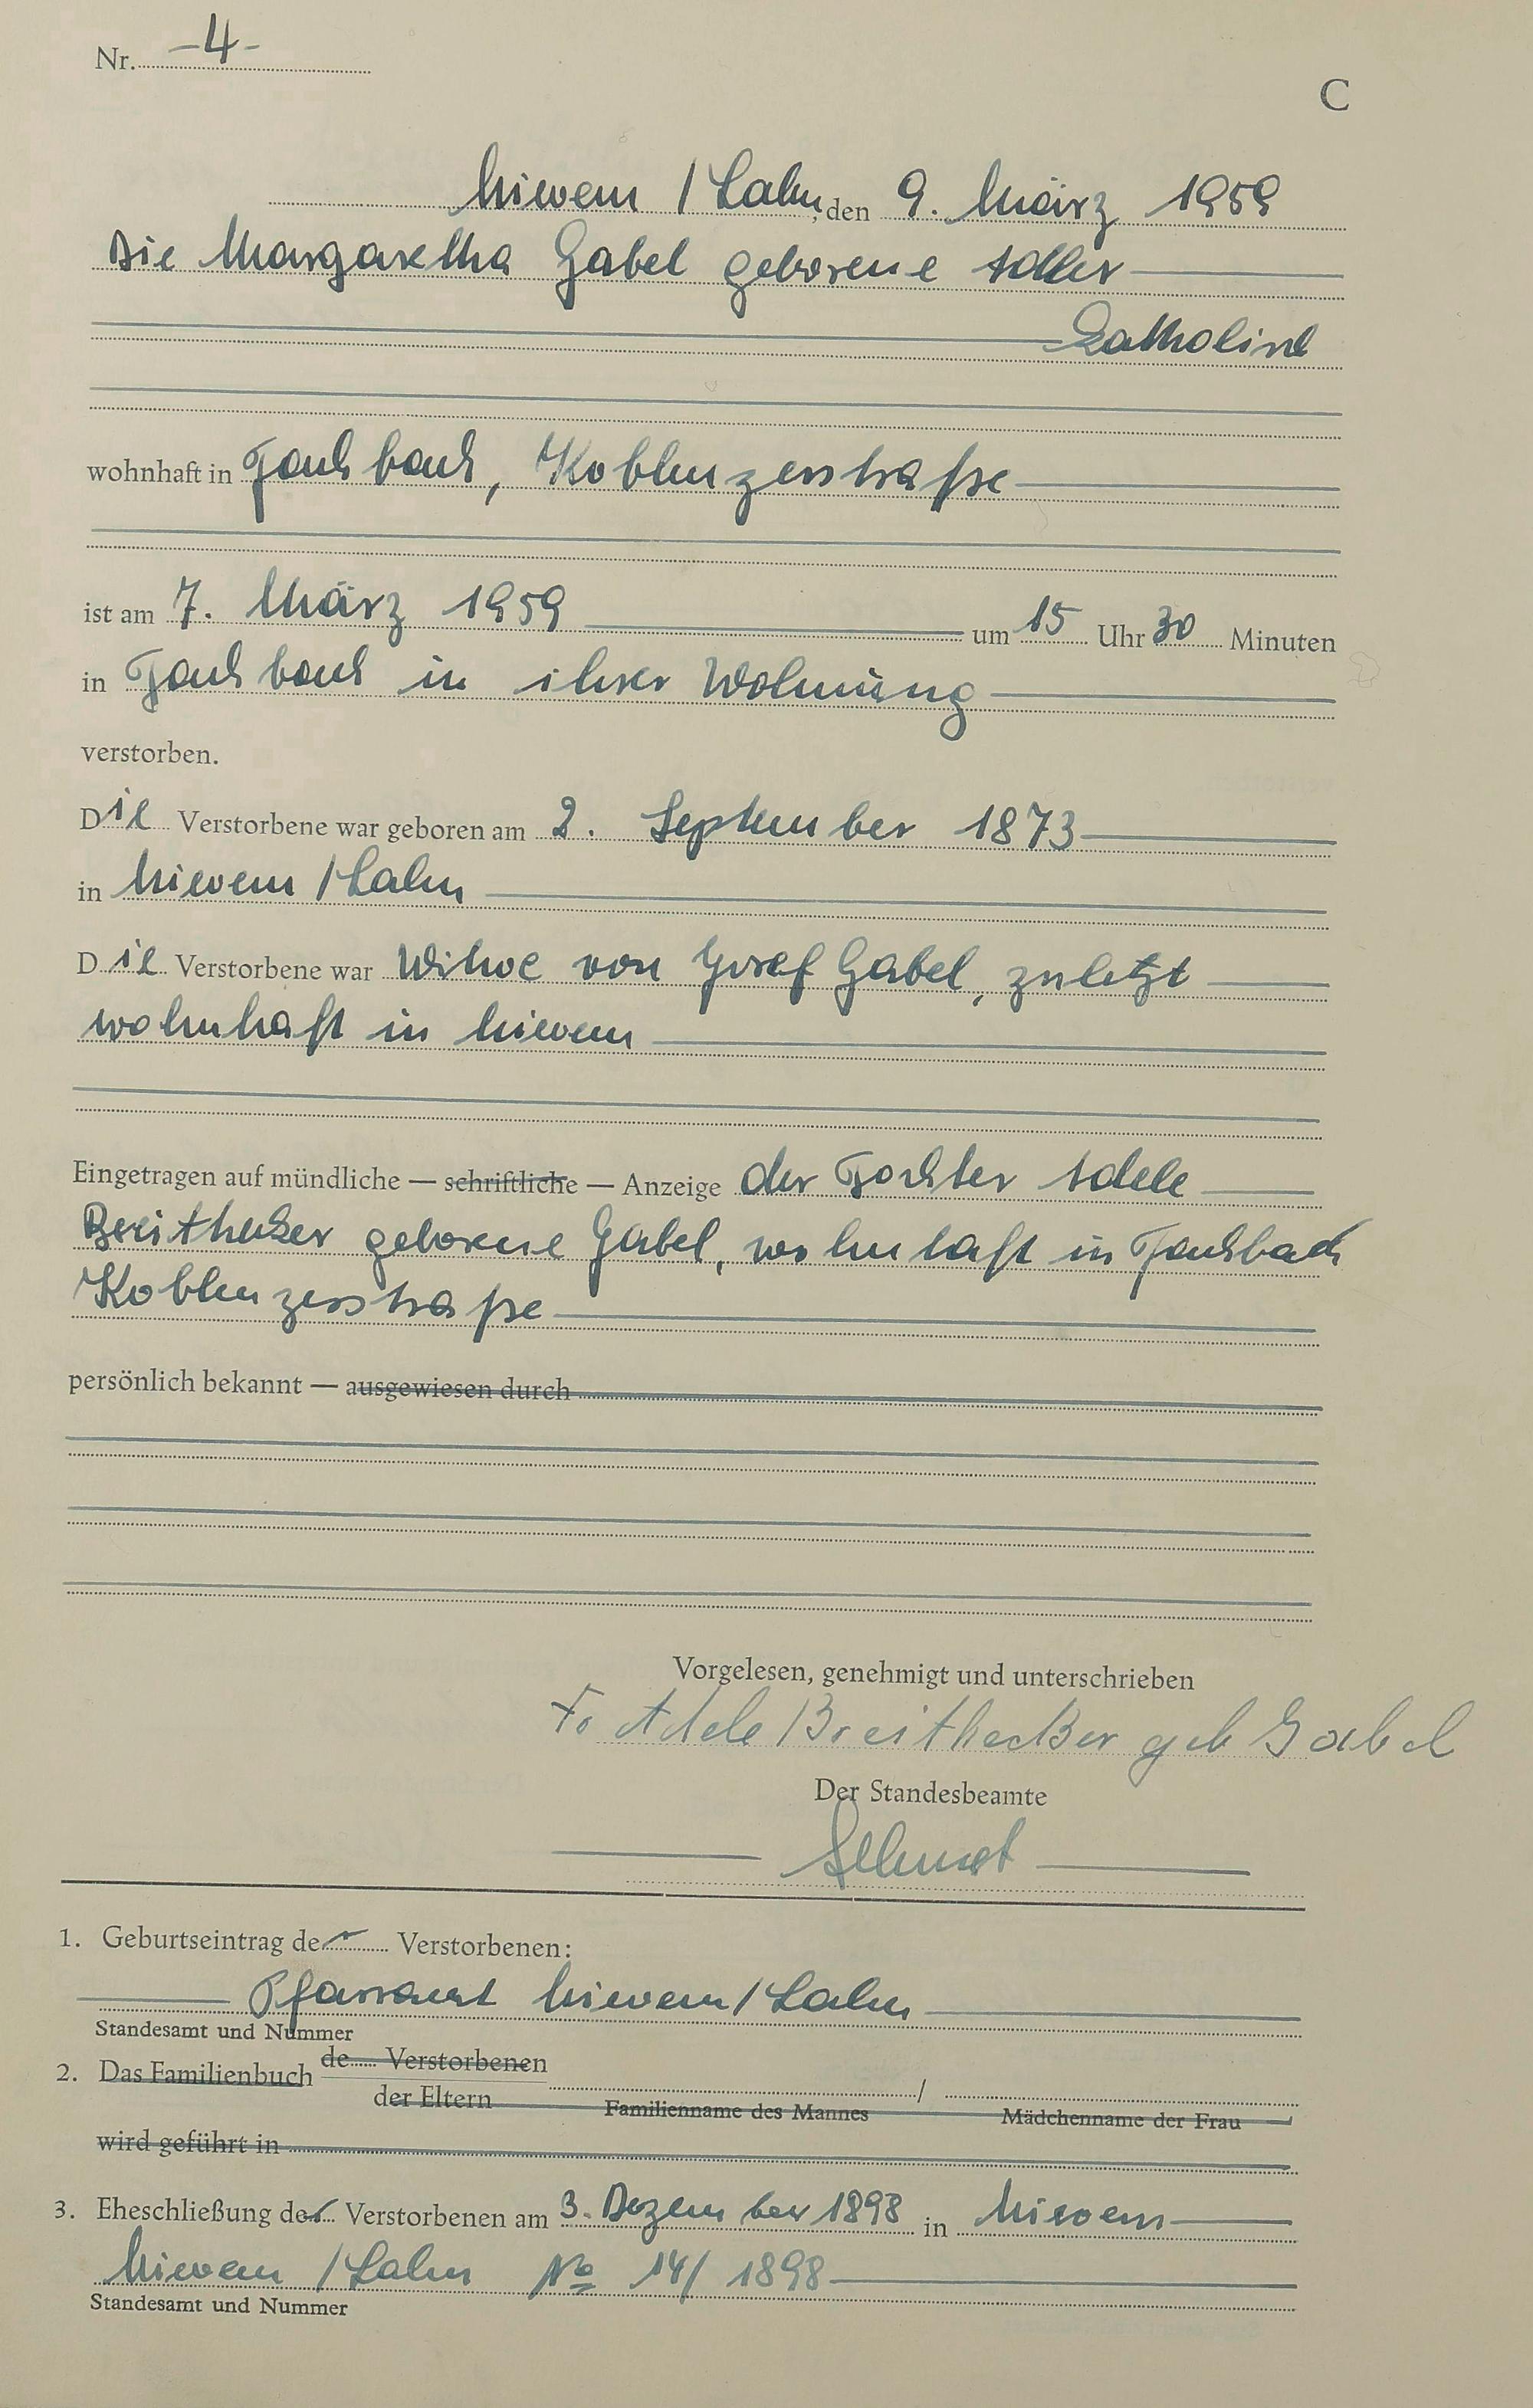 Nr. -4-
C
Nievern / Lahn, den 9. März 1959
Die Margaretha Gabel geborene Adler
Katholisch
wohnhaft in Fachbach, Koblenzerstraße
ist am 7. März 1959 um 15 Uhr 30 Minuten
in Fachbach in ihrer Wohnung
verstorben.
Die Verstorbene war geboren am 2. September 1873
in Nievern / Lahn
Die Verstorbene war Witwe von Josef Gabel, zuletzt
wohnhaft in Nievern
Eingetragen auf mündliche — schriftliche — Anzeige der Tochter Adele
Breithecker geborene Gabel, wohnhaft in Fachbach
Koblenzerstraße
persönlich bekannt — ausgewiesen durch
Vorgelesen, genehmigt und unterschrieben
Fr. Adele Breithecker geb Gabel
Der Standesbeamte
1. Geburtseintrag der Verstorbenen:
Pfarramt Nievern / Lahn
Standesamt und Nummer
2. Das Familienbuch de Verstorbenen
der Eltern /
Familienname des Mannes Mädchenname der Frau
wird geführt in
3. Eheschließung der Verstorbenen am 3. Dezember 1898 in Nievern
Nievern / Lahn No 14/ 1898
Standesamt und Nummer